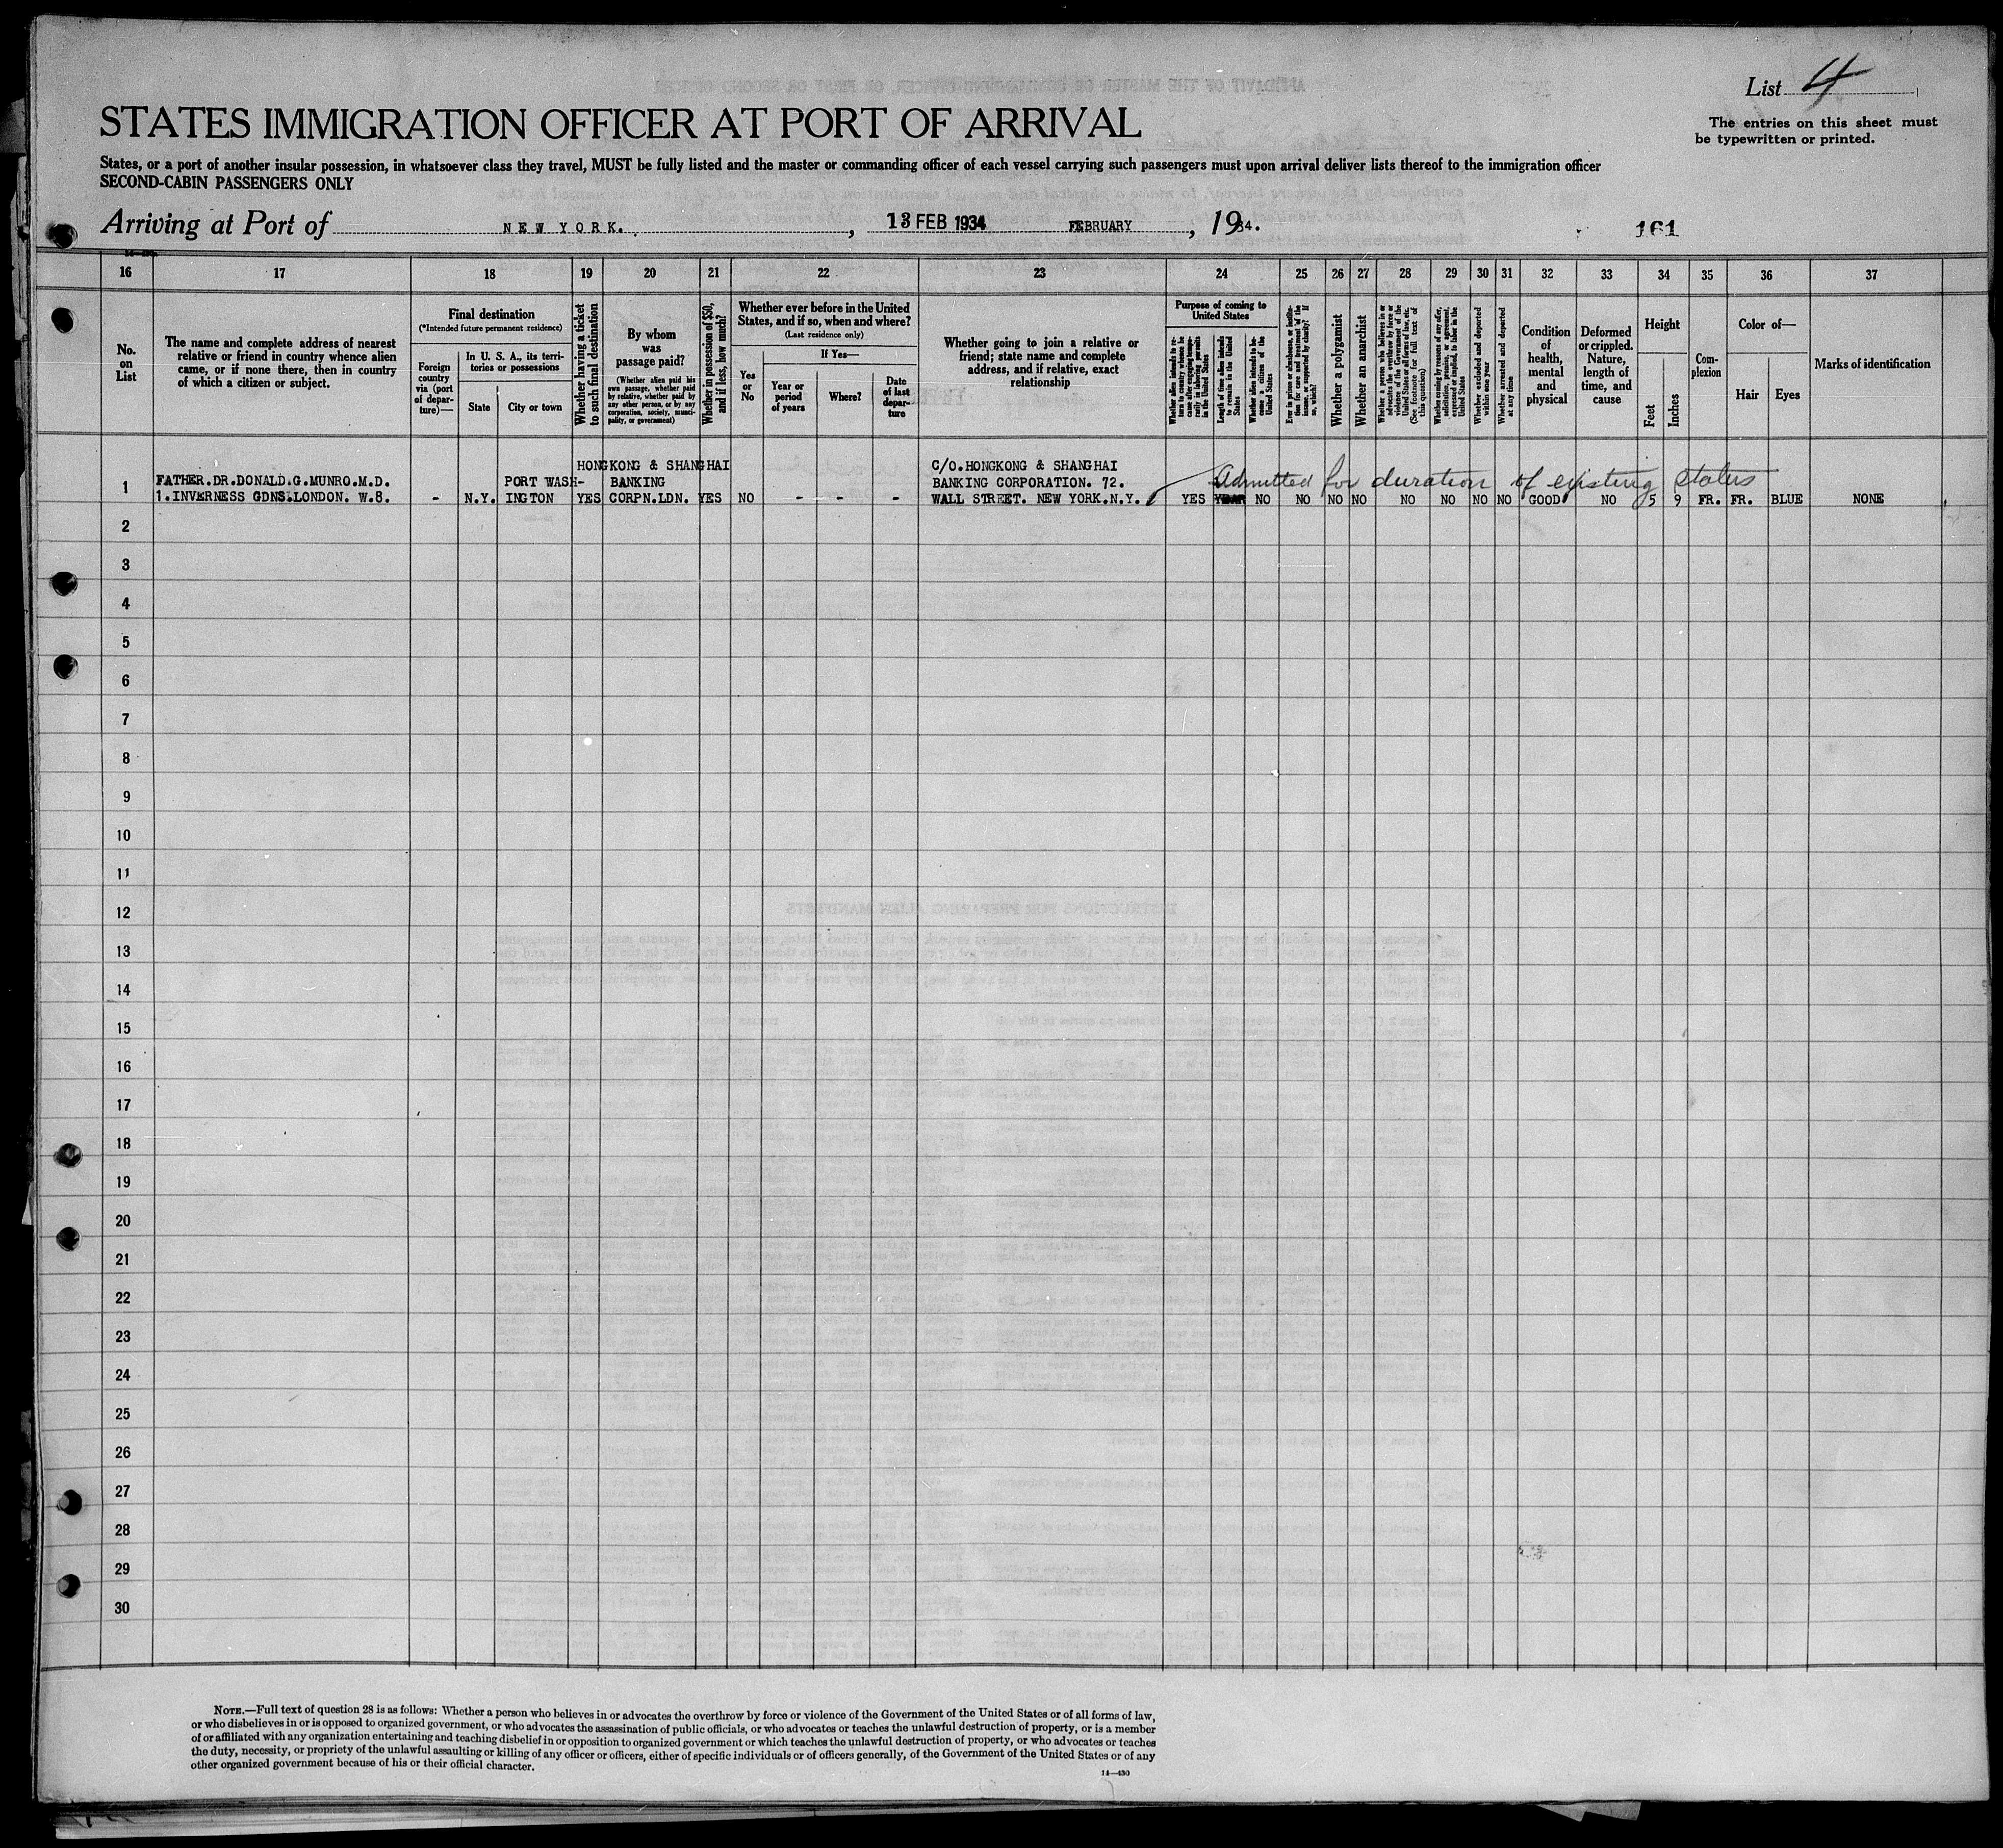 List 4
STATES IMMIGRATION OFFICER AT PORT OF ARRIVAL
The entries on this sheet must
be typewritten or printed.
States, or a port of another insular possession, in whatsoever class they travel, MUST be fully listed and the master or commanding officer of each vessel carrying such passengers must upon arrival deliver lists thereof to the immigration officer
SECOND-CABIN PASSENGERS ONLY
Arriving at Port of NEW YORK. , 13 FEB 1934 FEBRUARY , 1934. 161
16 17 18 19 20 21 22 23 24 25 26 27 28 29 30 31 32 33 34 35 36 37
No.
on
List
The name and complete address of nearest
relative or friend in country whence alien
came, or if none there, then in country
of which a citizen or subject.
Final destination
(*Intended future permanent residence)
Foreign
country
via (port
of depar-
ture)—
In U. S. A., its terri-
tories or possessions
State
City or town
Whether having a ticket
to such final destination
By whom
was
passage paid?
(Whether alien paid his
own passage, whether paid
by relative, whether paid by
any other person, or by any
corporation, society, munici-
pality, or government)
Whether in possession of $50,
and if less, how much?
Whether ever before in the United
States, and if so, when and where?
(Last residence only)
Yes
or
No
If Yes—
Year or
period
of years
Where?
Date
of last
depar-
ture
Whether going to join a relative or
friend; state name and complete
address, and if relative, exact
relationship
Purpose of coming to
United States
Whether alien intends to re-
turn to country whence he
came after engaging tempo-
rarily in laboring pursuits
in the United States
Length of time alien intends
to remain in the United
States
Whether alien intends to be-
come a citizen of the
United States
Ever in prison or almshouse, or institu-
tion for care and treatment of the
insane, or supported by charity? If
so, which?
Whether a polygamist
Whether an anarchist
Whether a person who believes in or
advocates the overthrow by force or
violence of the Government of the
United States or all forms of law, etc.
(See footnote for full text of
this question)
Whether coming by reason of any offer,
solicitation, promise, or agreement,
expressed or implied, to labor in the
United States
Whether excluded and deported
within one year
Whether arrested and deported
at any time
Condition
of
health,
mental
and
physical
Deformed
or crippled.
Nature,
length of
time, and
cause
Height
Feet
Inches
Com-
plexion
Color of—
Hair
Eyes
Marks of identification
1
FATHER.DR.DONALD.G.MUNRO.M.D.
1.INVERNESS GDNS.LONDON. W.8.
-
N.Y.
PORT WASH-
INGTON
YES
HONGKONG & SHANGHAI
BANKING
CORPN.LDN.
YES
NO
-
-
-
C/O.HONGKONG & SHANGHAI
BANKING CORPORATION. 72.
WALL STREET. NEW YORK.N.Y.
Admitted for duration of existing status
YES YEAR NO NO NO NO NO NO NO NO GOOD NO 5 9 FR. FR. BLUE NONE
2
3
4
5
6
7
8
9
10
11
12
13
14
15
16
17
18
19
20
21
22
23
24
25
26
27
28
29
30
NOTE.—Full text of question 28 is as follows: Whether a person who believes in or advocates the overthrow by force or violence of the Government of the United States or of all forms of law,
or who disbelieves in or is opposed to organized government, or who advocates the assassination of public officials, or who advocates or teaches the unlawful destruction of property, or is a member
of or affiliated with any organization entertaining and teaching disbelief in or opposition to organized government or which teaches the unlawful destruction of property, or who advocates or teaches
the duty, necessity, or propriety of the unlawful assaulting or killing of any officer or officers, either of specific individuals or of officers generally, of the Government of the United States or of any
other organized government because of his or their official character.
14—430